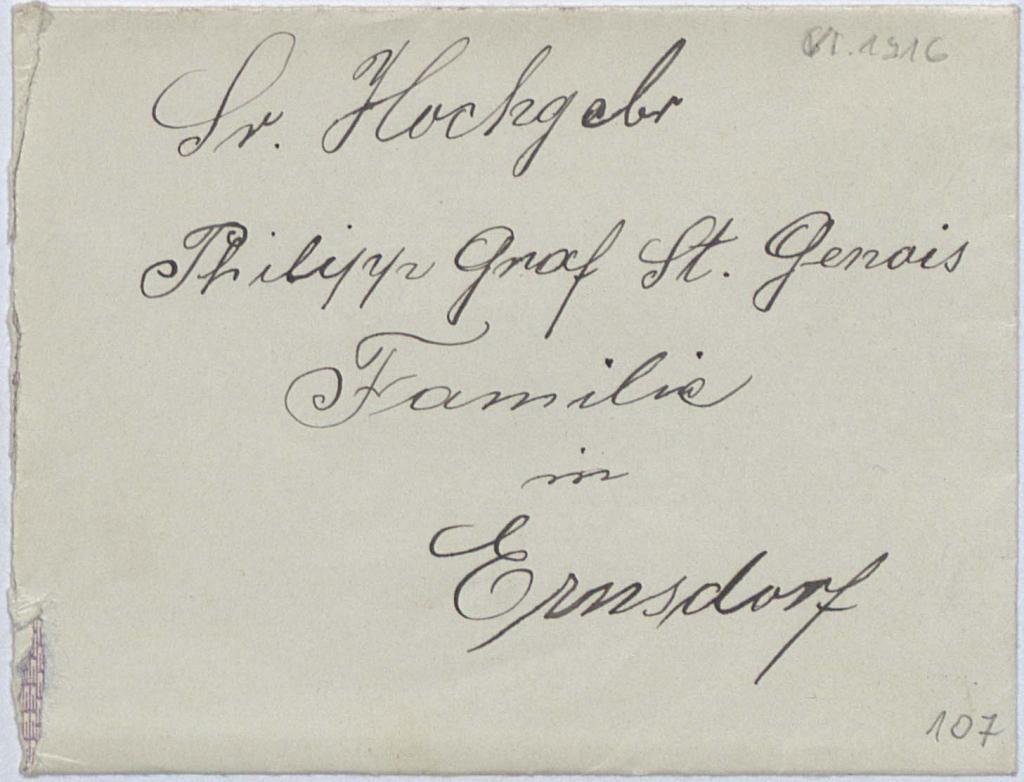 VI.1916
Sr. Hochgebr
Philipp Graf St. Genois
Familie
in
Ernsdorf
107